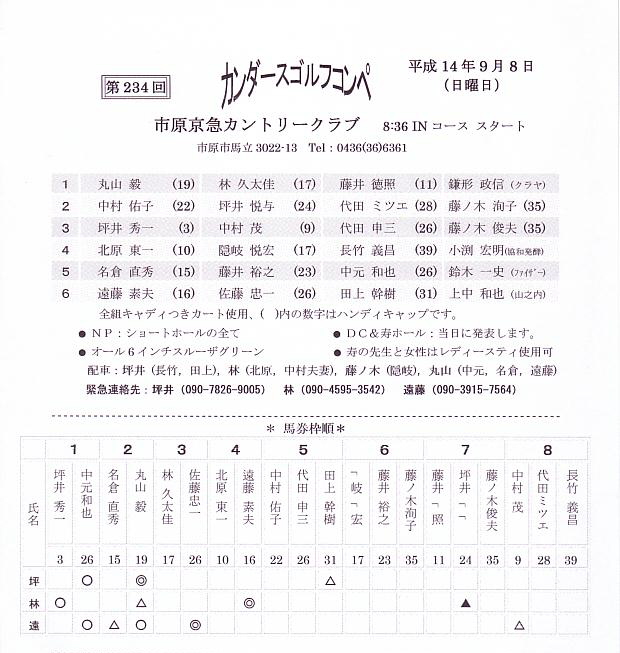 第234回
カンダースゴルフコンペ
平成14年9月8日
(日曜日)
市原京急カントリークラブ 8:36 INコース スタート
市原市馬立3022-13 Tel：0436(36)6361
1 丸山 毅 (19) 林 久太佳 (17) 藤井 徳照 (11) 鎌形 政信 (クラヤ)
2 中村 佑子 (22) 坪井 悦与 (24) 代田 ミツエ (28) 藤ノ木 洵子 (35)
3 坪井 秀一 (3) 中村 茂 (9) 代田 申三 (26) 藤ノ木 俊夫 (35)
4 北原 東一 (10) 隠岐 悦宏 (17) 長竹 義昌 (39) 小渕 宏明 (協和発酵)
5 名倉 直秀 (15) 藤井 裕之 (23) 中元 和也 (26) 鈴木 一史 (ファイザー)
6 遠藤 素夫 (16) 佐藤 忠一 (26) 田上 幹樹 (31) 上中 和也 (山之内)
全組キャディつきカート使用、( )内の数字はハンディキャップです。
● NP：ショートホールの全て ● DC＆寿ホール：当日に発表します。
● オール6インチスルーザグリーン ● 寿の先生と女性はレディースティ使用可
配車：坪井 (長竹, 田上), 林 (北原, 中村夫妻), 藤ノ木 (隠岐), 丸山 (中元, 名倉, 遠藤)
緊急連絡先：坪井 (090-7826-9005) 林 (090-4595-3542) 遠藤 (090-3915-7564)
＊ 馬券枠順＊
1 2 3 4 5 6 7 8
氏名 坪井 秀一 中元和也 名倉 直秀 丸山 毅 林 久太佳 佐藤忠一 北原 東一 遠藤 素夫 中村 佑子 代田 申三 田上 幹樹 岐 宏 藤井 裕之 藤ノ木洵子 藤井 照 坪井 藤ノ木俊夫 中村 茂 代田ミツエ 長竹 義昌
3 26 15 19 17 26 10 16 22 26 31 17 23 35 11 24 35 9 28 39
坪 ○ ◎ △
林 ○ △ ◎ ▲
遠 ○ △ ○ ◎ △